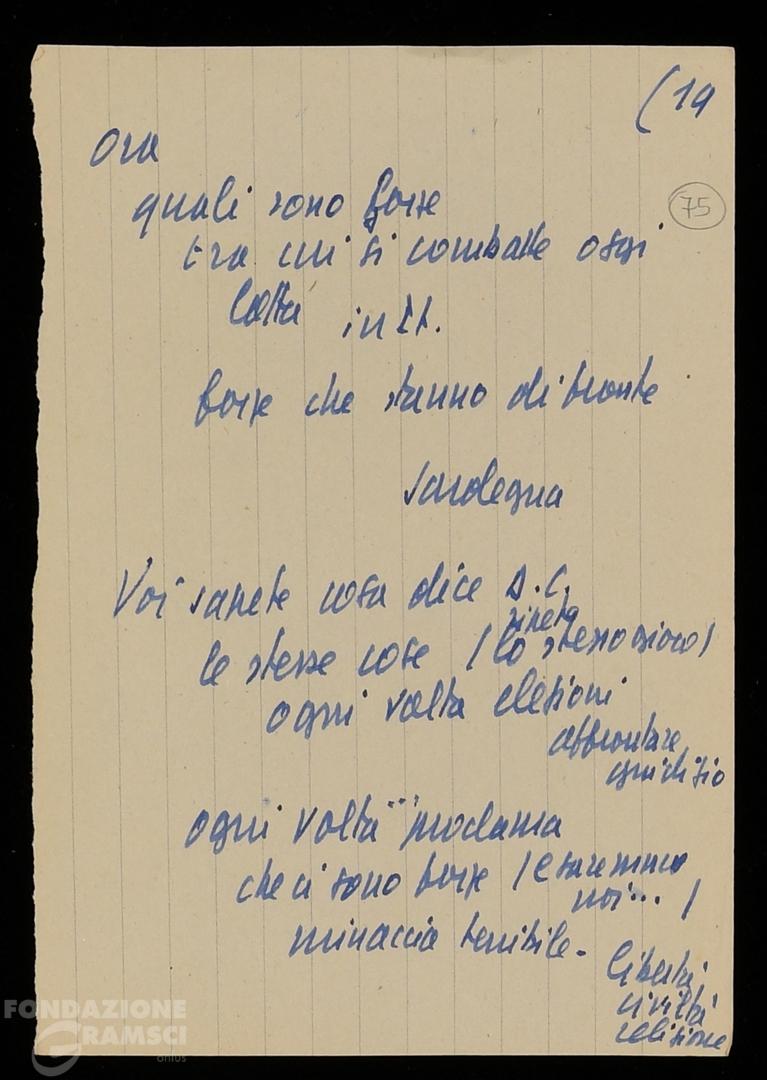 (19
75
Ora
quali sono forze
tra cui si combatte oggi
lotta in It.
forze che stanno di fronte
Sardegna
Voi sapete cosa dice D.C.
ripete
le stesse cose (lo stesso gioco)
ogni volta elezioni
affrontare
giudizio
ogni volta ... proclama
che ci sono forze (e saremmo
noi... )
minaccia terribile -
libertà
civiltà
religione
FONDAZIONE
GRAMSCI
onlus